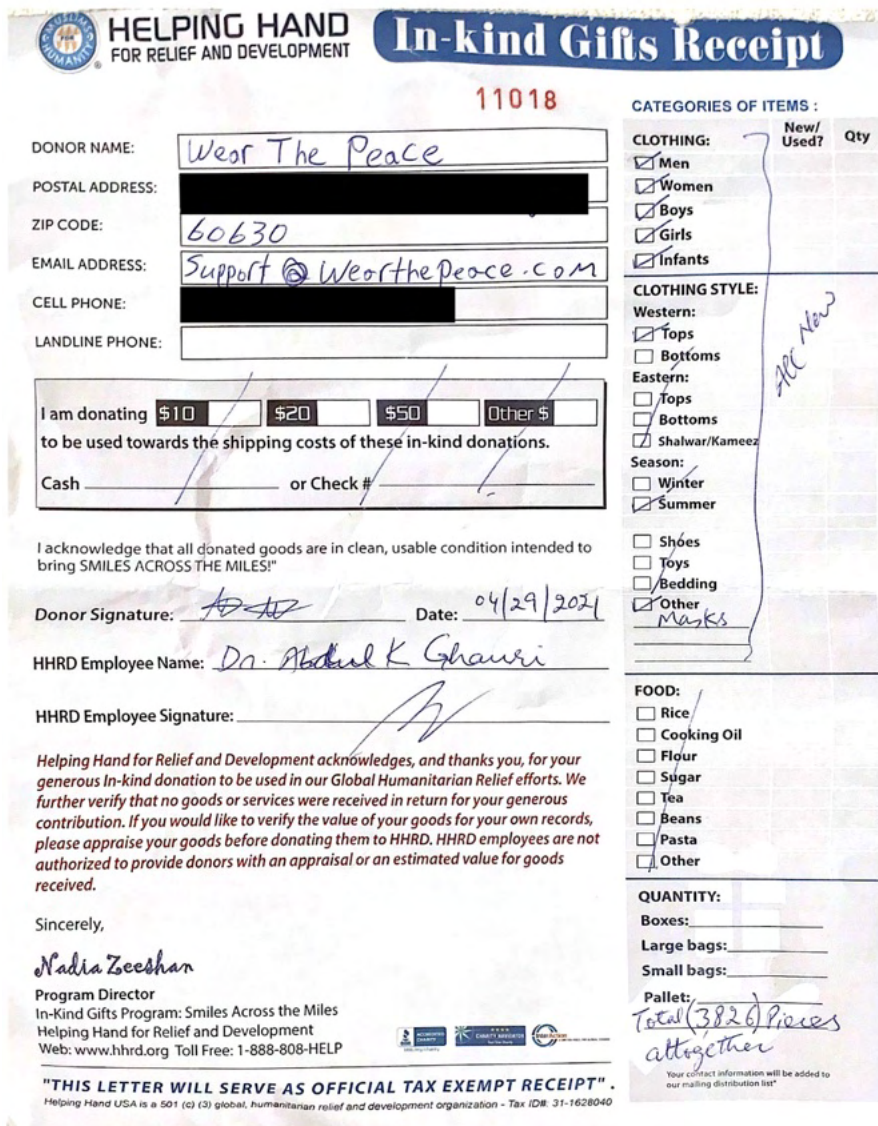 MUSLIMS
HUMANITY
HELPING HAND
FOR RELIEF AND DEVELOPMENT
®
In-kind Gifts Receipt
11018
DONOR NAME: Wear The Peace
POSTAL ADDRESS:
ZIP CODE: 60630
EMAIL ADDRESS: Support@Wearthepeace.com
CELL PHONE:
LANDLINE PHONE:
I am donating $10 $20 $50 Other $
to be used towards the shipping costs of these in-kind donations.
Cash or Check #
I acknowledge that all donated goods are in clean, usable condition intended to
bring SMILES ACROSS THE MILES!"
Donor Signature: Date: 04/29/2021
HHRD Employee Name: Dr. Abdul K Ghauri
HHRD Employee Signature:
Helping Hand for Relief and Development acknowledges, and thanks you, for your
generous In-kind donation to be used in our Global Humanitarian Relief efforts. We
further verify that no goods or services were received in return for your generous
contribution. If you would like to verify the value of your goods for your own records,
please appraise your goods before donating them to HHRD. HHRD employees are not
authorized to provide donors with an appraisal or an estimated value for goods
received.
Sincerely,
Nadia Zeeshan
Program Director
In-Kind Gifts Program: Smiles Across the Miles
Helping Hand for Relief and Development
Web: www.hhrd.org Toll Free: 1-888-808-HELP
ACCREDITED
CHARITY
CHARITY NAVIGATOR
InterAction
"THIS LETTER WILL SERVE AS OFFICIAL TAX EXEMPT RECEIPT" .
Helping Hand USA is a 501 (c) (3) global, humanitarian relief and development organization - Tax ID#: 31-1628040
CATEGORIES OF ITEMS :
CLOTHING: New/ Used? Qty
Men
Women
Boys
Girls
Infants
CLOTHING STYLE:
Western:
Tops
Bottoms
Eastern:
Tops
Bottoms
Shalwar/Kameez
Season:
Winter
Summer
All New
Shoes
Toys
Bedding
Other
Masks
FOOD:
Rice
Cooking Oil
Flour
Sugar
Tea
Beans
Pasta
Other
QUANTITY:
Boxes:
Large bags:
Small bags:
Pallet:
Total (3826) Pieces
altogether
Your contact information will be added to
our mailing distribution list"